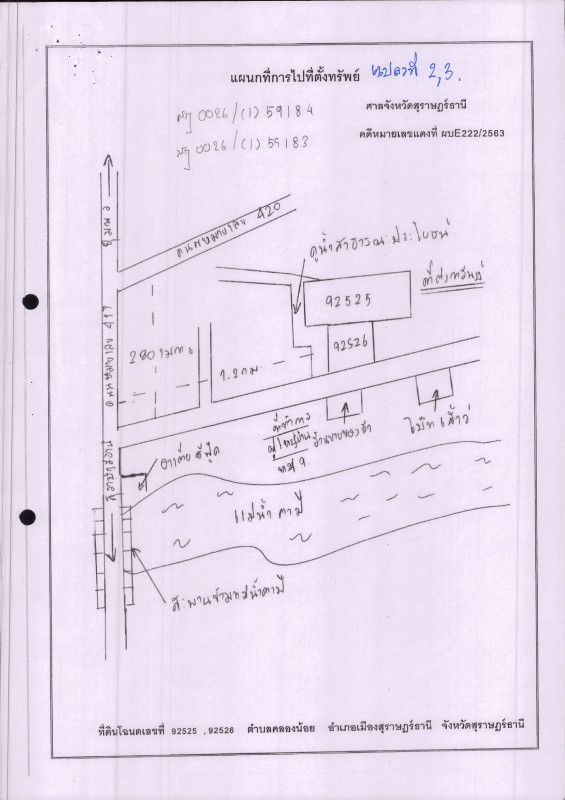 แผนกที่การไปที่ตั้งทรัพย์ แปลงที่ 2,3.
ศาลจังหวัดสุราษฎร์ธานี
สฎ 0026/(1) 59184
คดีหมายเลขแดงที่ ผบE222/2563
สฎ 0026/(1) 59183
ชุมพร
ถนนหมายเลข 420
คูน้ำสาธารณะประโยชน์
ที่ตั้งทรัพย์
92525
ถนนหมายเลข 417
92526
280 เมตร
1.2 กม.
ที่ทำการ
ผู้ใหญ่บ้าน
ร้านขายของชำ
สุราษฎร์ธานี
แม่น้ำตาปี
สะพานข้ามแม่น้ำตาปี
ที่ดินโฉนดเลขที่ 92525 ,92526 ตำบลคลองน้อย อำเภอเมืองสุราษฎร์ธานี จังหวัดสุราษฎร์ธานี